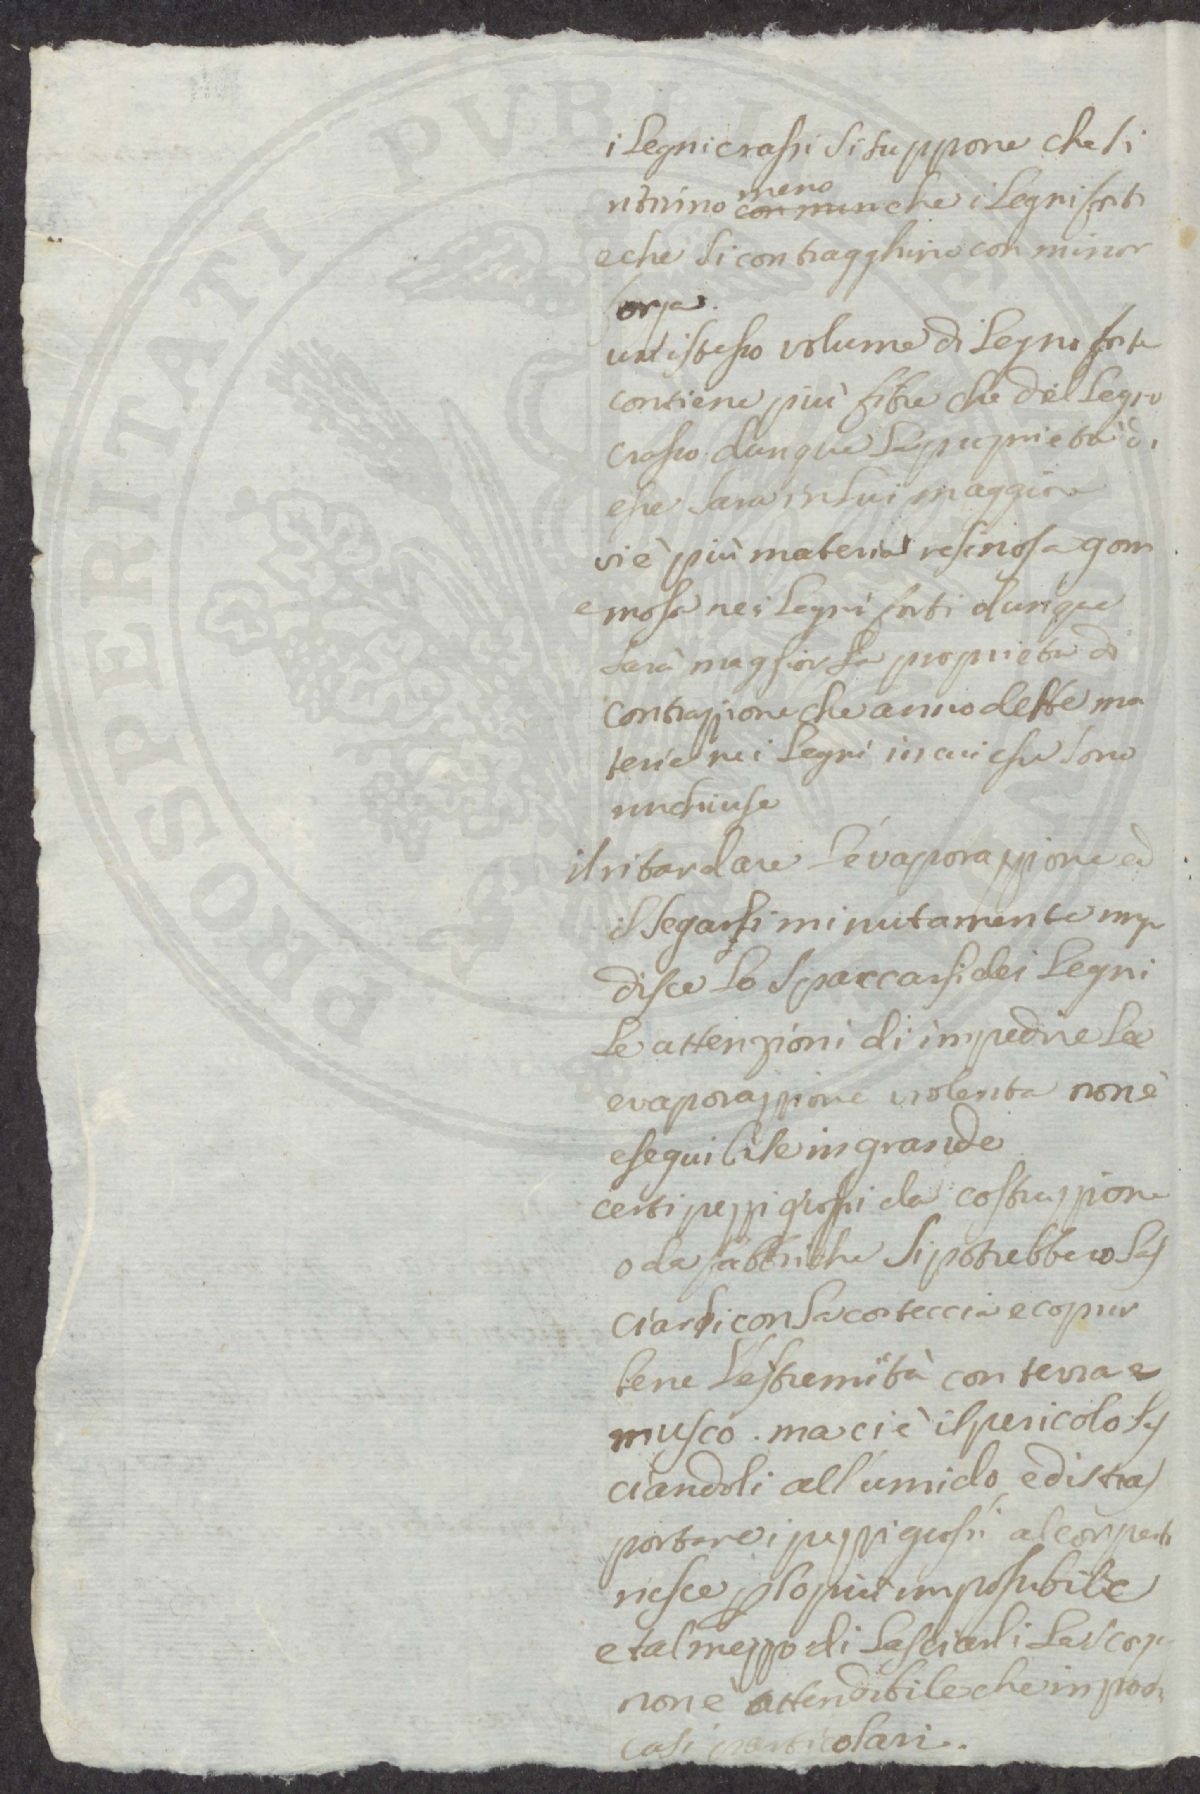 i legni crassi si suppone che si
ritirino meno che i legni forti
e che si contragghino con minor
forza.
un istesso volume di legno forte
contiene più fibre che del legno
crasso dunque la proprietà di
esse sara in lui maggiore
vi è più materia resinosa gom
e mosa nei legni forti dunque
sarà maggior la proprietà di
contrazzione che anno desse ma
terie nei legni in cui esse sono
rinchiuse
il ritardare l'evaporazzione ed
il segarsi minutamente impe
disce lo spaccarsi dei legni
le attenzioni di impedire la
evaporazzione violenta non è
eseguibile in grande
certi pezzi grossi da costruzzione
o da fabbriche si potrebbero las
ciarsi con la corteccia e coprir
bene l'estremità con terra e
musco. ma ci è il pericolo las
ciandoli all'umido, e di tras
portare i pezzi grossi al coperto
riesce p lo più impossibile
e tal mezzo di lasciarli la scorz
non è attendibile che in poch
casi particolari.
PROSPERITATI PVBLICAE